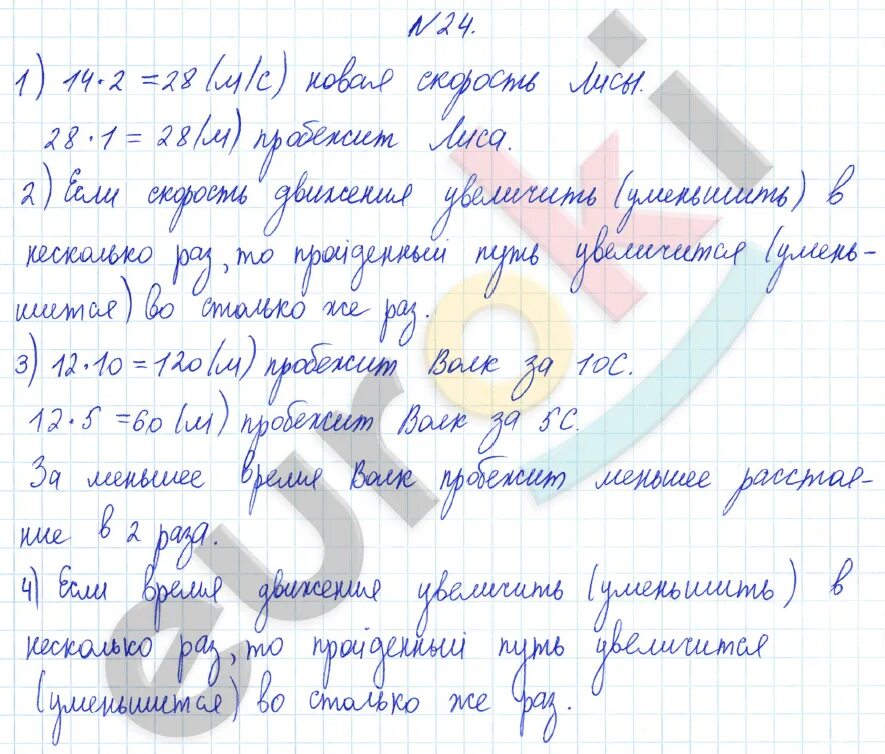 №24.
1) 14·2=28(м/с) новая скорость Лисы.
28·1=28(м) пробежит Лиса.
2) Если скорость движения увеличить (уменьшить) в
несколько раз, то пройденный путь увеличится (умень-
шится) во столько же раз.
3) 12·10=120(м) пробежит Волк за 10с.
12·5=60(м) пробежит Волк за 5с.
За меньшее время Волк пробежит меньшее расстоя-
ние в 2 раза.
4) Если время движения увеличить (уменьшить) в
несколько раз, то пройденный путь увеличится
(уменьшится) во столько же раз.
euroki